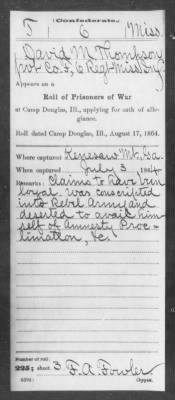 (Confederate.)
T 6 Miss.
David M. Thompson
pvt Co. I, 6 Regt Miss Inf.
Appears on a
Roll of Prisoners of War
at Camp Douglas, Ill., applying for oath of alle-
giance.
Roll dated Camp Douglas, Ill., August 17, 1864.
Where captured Kenesaw Mt. Ga.
When captured July 3 1864
Remarks: Claims to have been
loyal. was conscripted
into Rebel Army and
deserted to avail him
self of Amnesty Proc=
limation, &c.
Number of roll:
223; sheet 3 F. A. Fowler
Copyist.